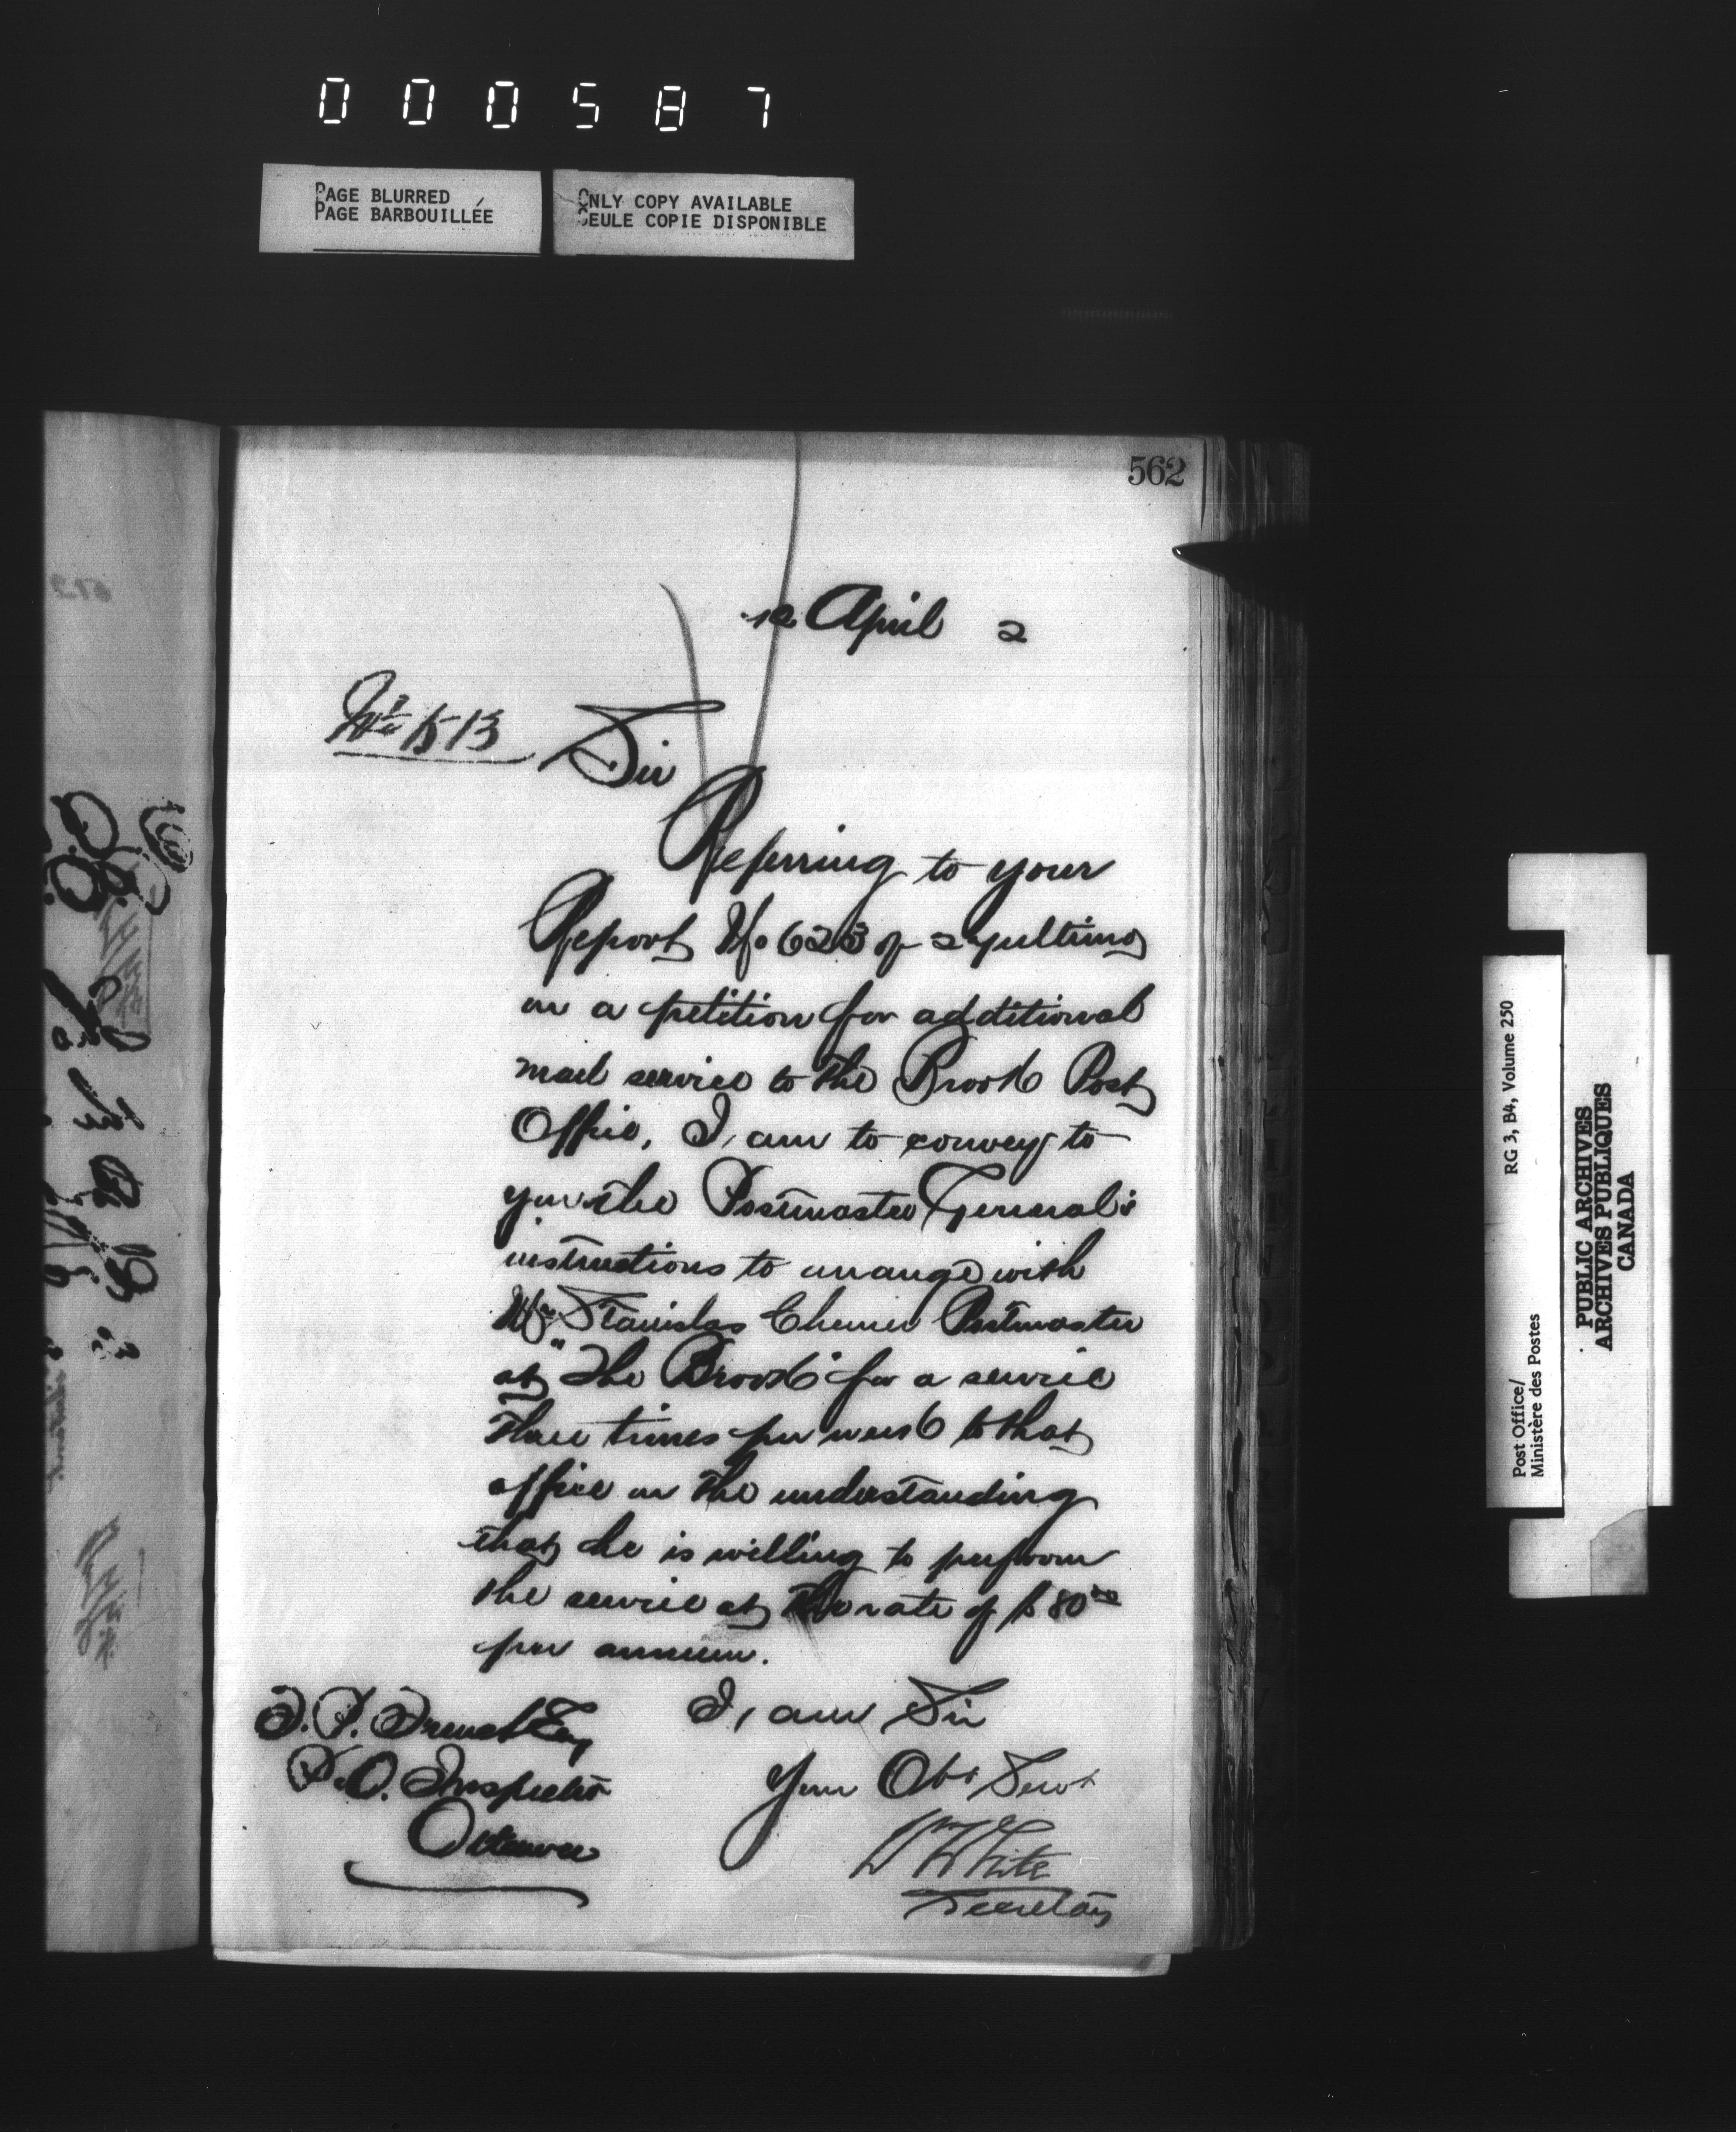 000587
PAGE BLURRED
PAGE BARBOUILLÉE
ONLY COPY AVAILABLE
SEULE COPIE DISPONIBLE
562
12 April 2
No 513
Sir
Referring to your
Report No 623 of ultimo
on a petition for additional
mail service to the Brook Post
Office, I, am to convey to
you the Postmaster General's
instructions to arrange with
Mr Stanislas Postmaster
at "The Brook" for a service
three times per week to that
office on the understanding
that he is willing to perform
the service at the rate of $80
per annum.
I, am Sir
Your Obt Servt
W White
Secretary
T. P. French Esq
P. O. Inspector
Ottawa
RG 3, B4, Volume 250
Post Office/
Ministère des Postes
PUBLIC ARCHIVES
ARCHIVES PUBLIQUES
CANADA